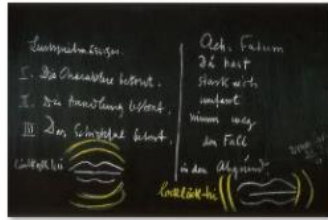 Lustspielmässiges.
I. Die Charaktere betont.
II. Die Handlung betont.
III Das Schicksal betont.
Ach, Fatum
Du hast
stark mich
umfasst
nimm weg
den Fall
in den Abgrund.